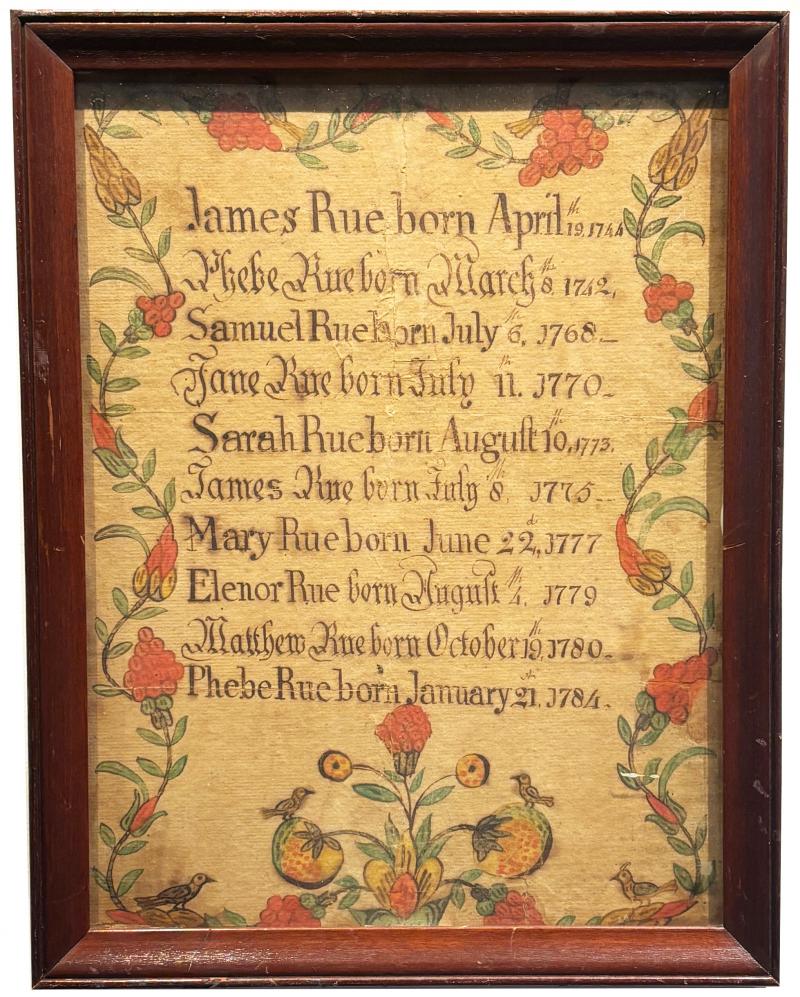 James Rue born April 19th, 1744
Phebe Rue born March 8th 1742,
Samuel Rue born July 6th, 1768
Jane Rue born July 11th. 1770
Sarah Rue born August 10th, 1773.
James Rue born July 8th, 1775
Mary Rue born June 22d, 1777
Elenor Rue born August 4th, 1779
Matthew Rue born October 19th, 1780
Phebe Rue born January 21st, 1784